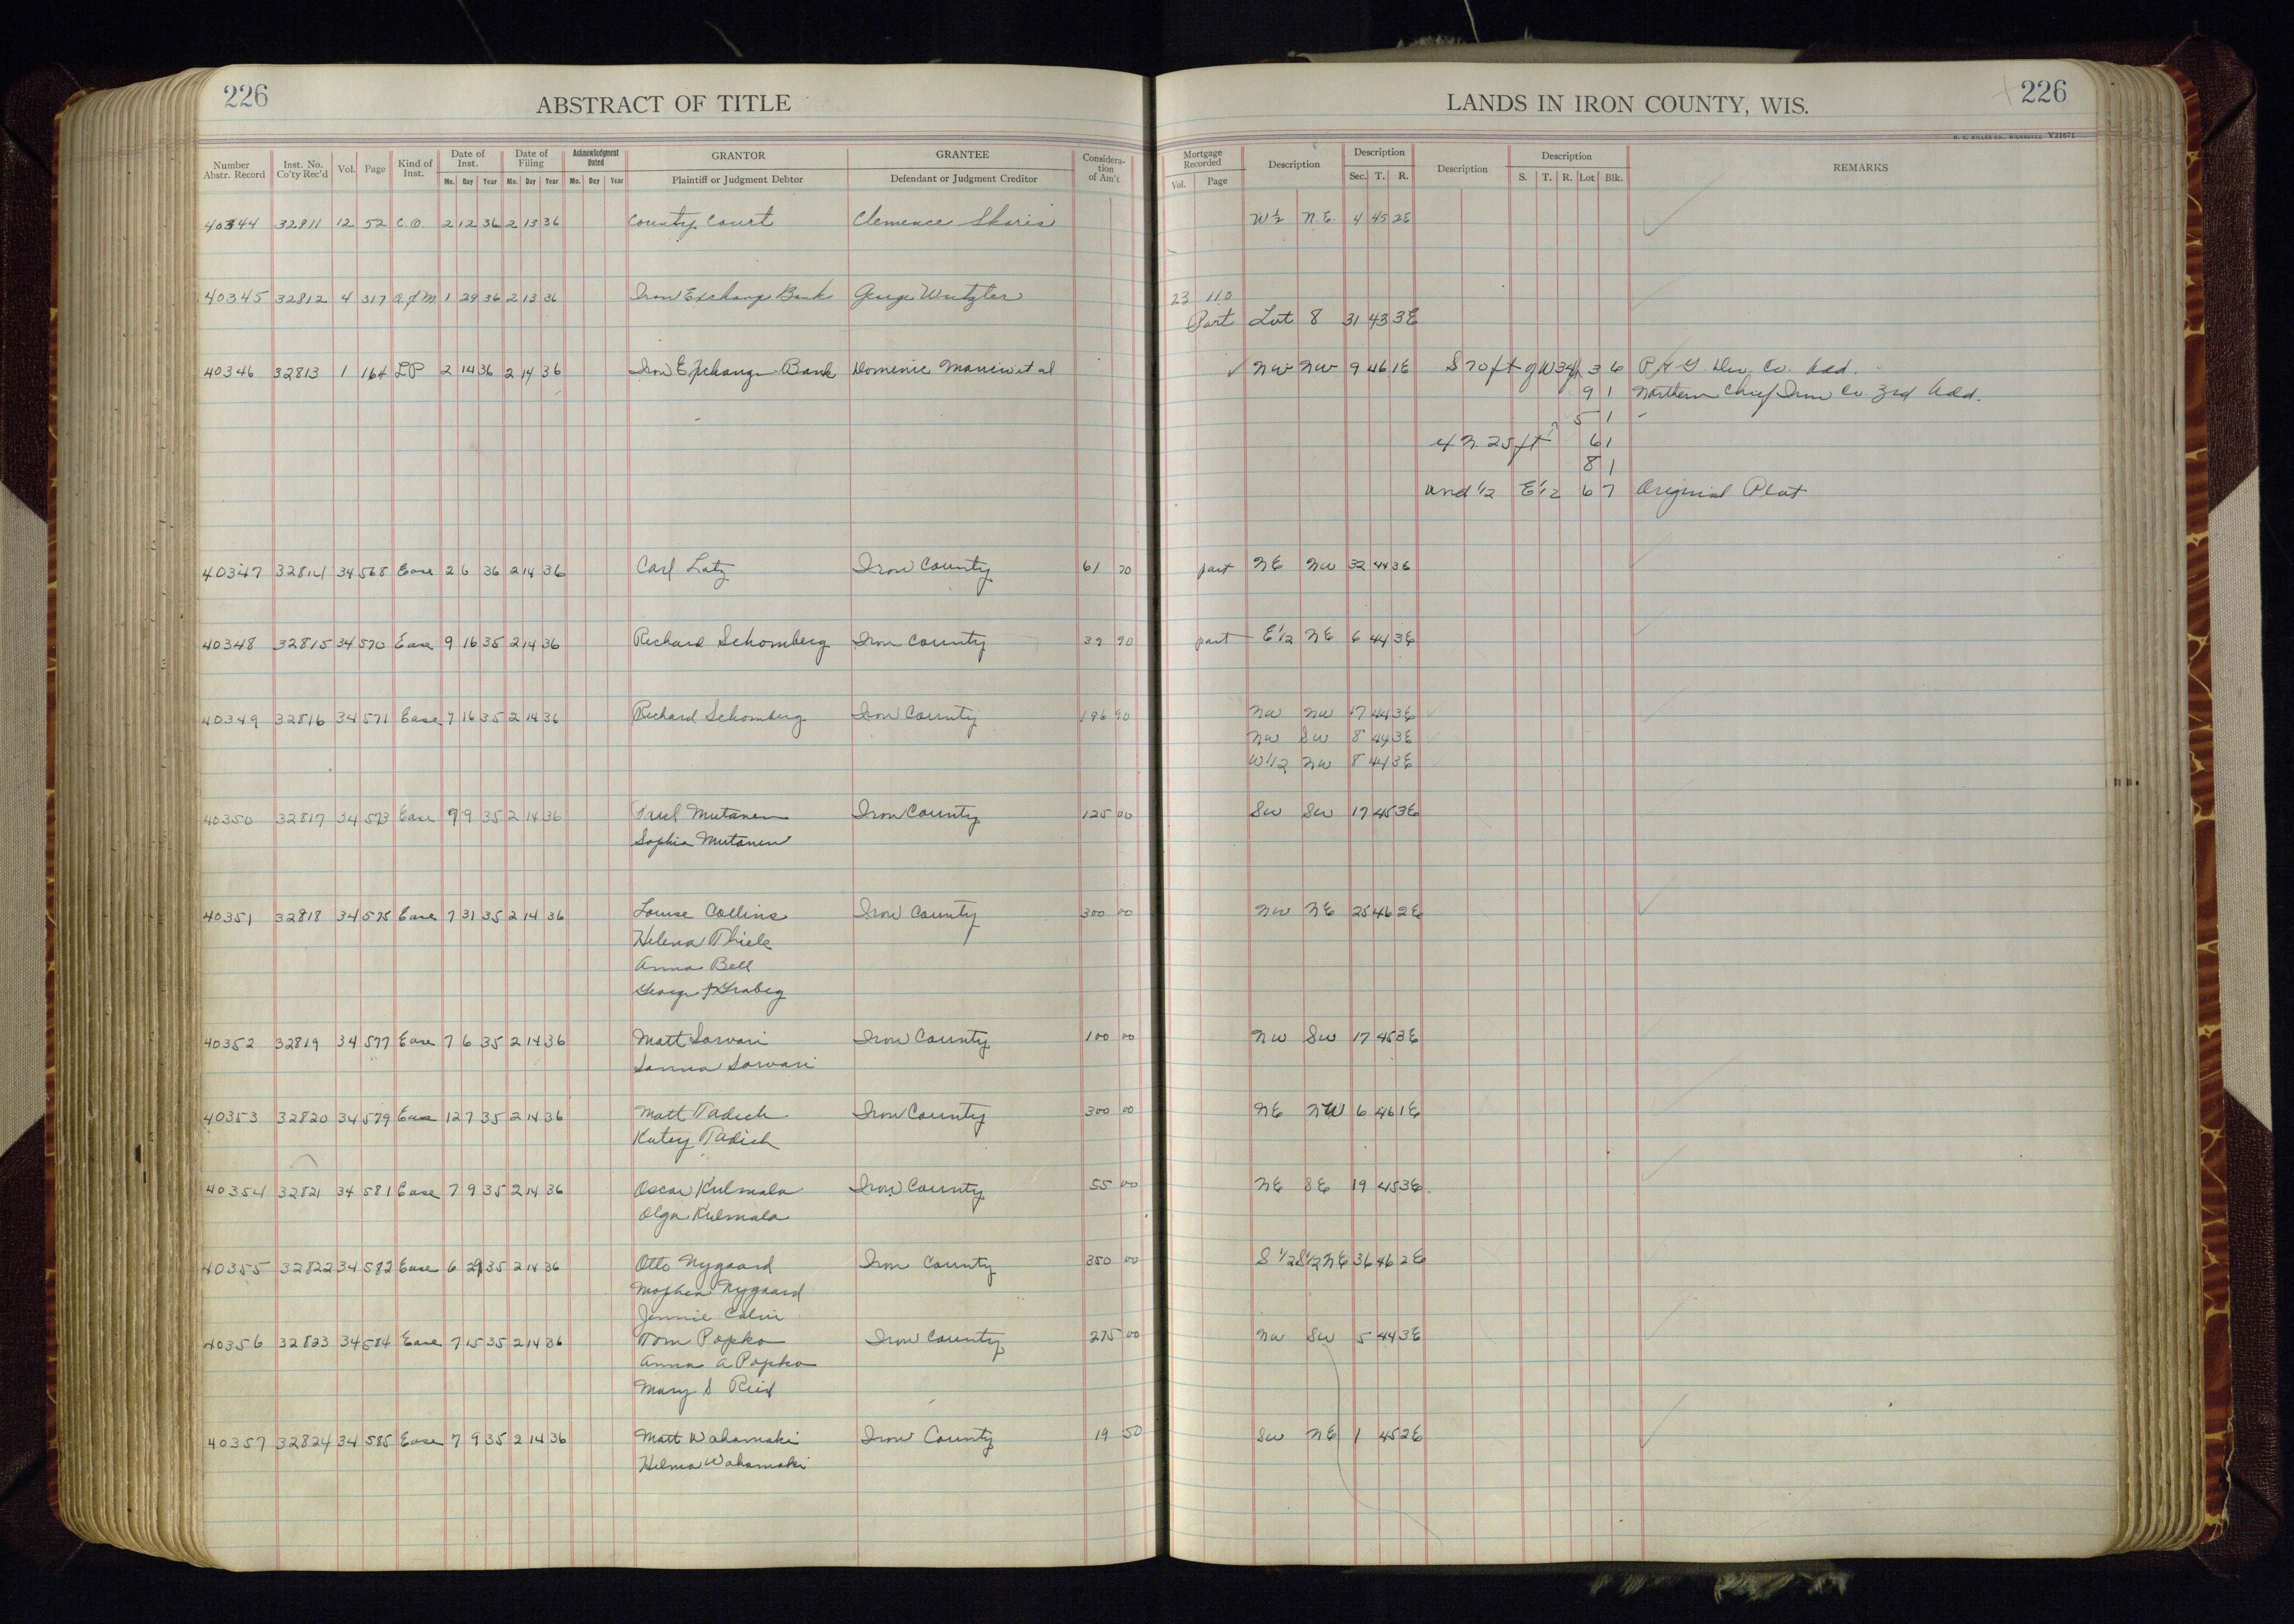 226
ABSTRACT OF TITLE
LANDS IN IRON COUNTY, WIS.
226
Y21671
Number Abstr. Record Inst. No. Co'ty Rec'd Vol. Page Kind of Inst. Date of Inst. Date of Filing Acknowledgment Dated GRANTOR GRANTEE Considera-tion of Am't Mortgage Recorded Description Description Description Description REMARKS
Mo. Day Year Mo. Day Year Mo. Day Year Plaintiff or Judgment Debtor Defendant or Judgment Creditor Vol. Page Sec. T. R. S. T. R. Lot Blk.
40344 32811 12 52 C.O. 2 12 36 2 13 36 County Court Clemence Skoris W½ N.E. 4 45 2E
40345 32812 4 317 a of M 1 29 36 2 13 36 Iron Exchange Bank George Wutzler 23 110
Part Lot 8 31 43 3E
40346 32813 1 164 LP 2 14 36 2 14 36 Iron Exchange Bank Domenic et al NW NW 9 46 1E S 70 ft of W 34 ft 3 6 Co. Add.
9 1 Northern Chief Iron Co. 3rd Add.
5 1
ex N. 25 ft 6 1
8 1
und 1/2 E 1/2 6 7 Original Plat
40347 32814 34 568 Ease 2 6 36 2 14 36 Carl Latz Iron County 61 70 part NE NW 32 44 3E
40348 32815 34 570 Ease 9 16 35 2 14 36 Richard Schomberg Iron County 39 90 part E 1/2 NE 6 44 3E
40349 32816 34 571 Ease 7 16 35 2 14 36 Richard Schomberg Iron County 196 90 NW NW 17 44 3E
NW SW 8 44 3E
W 1/2 NW 8 44 3E
40350 32817 34 573 Ease 7 9 35 2 14 36 Paul Mutanen Iron County 125 00 SW SW 17 45 3E
Sophia Mutanen
40351 32818 34 575 Ease 7 31 35 2 14 36 Louise Collins Iron County 300 00 NW NE 25 46 2E
Helena Thiele
Anna Bell
George
40352 32819 34 577 Ease 7 6 35 2 14 36 Matt Sarvari Iron County 100 00 NW SW 17 45 3E
Sanna Sarvari
40353 32820 34 579 Ease 12 7 35 2 14 36 Matt Tadich Iron County 300 00 NE NW 6 46 1E
Katey Tadich
40354 32821 34 581 Ease 7 9 35 2 14 36 Oscar Kulmala Iron County 55 00 NE SE 19 45 3E
Olga Kulmala
40355 32822 34 582 Ease 6 29 35 2 14 36 Otto Nygaard Iron County 350 00 S 1/2 S 1/2 NE 36 46 2E
Nygaard
Jennie
40356 32823 34 584 Ease 7 15 35 2 14 36 Tom Popko Iron County 275 00 NW SW 5 44 3E
Anna A Popko
Mary S Reid
40357 32824 34 585 Ease 7 9 35 2 14 36 Matt Wahamaki Iron County 19 50 SW NE 1 45 2E
Hilma Wahamaki